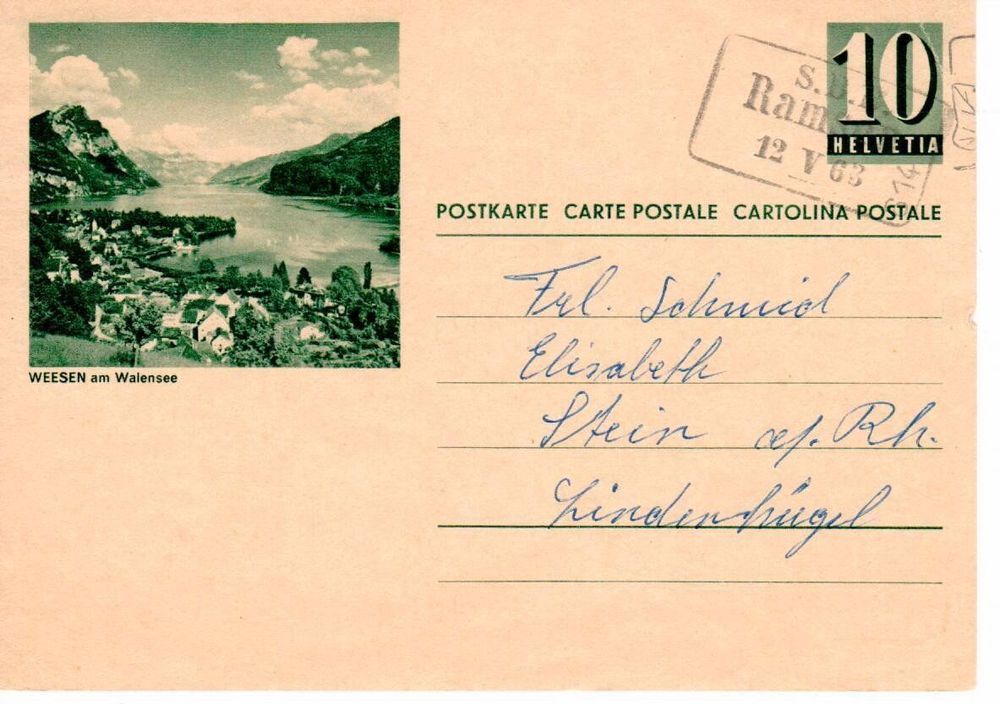 WEESEN am Walensee
10
HELVETIA
S.B.B.
12 V 63
POSTKARTE CARTE POSTALE CARTOLINA POSTALE
Frl. Schmid
Elisabeth
Stein a/. Rh.
Lindenhügel